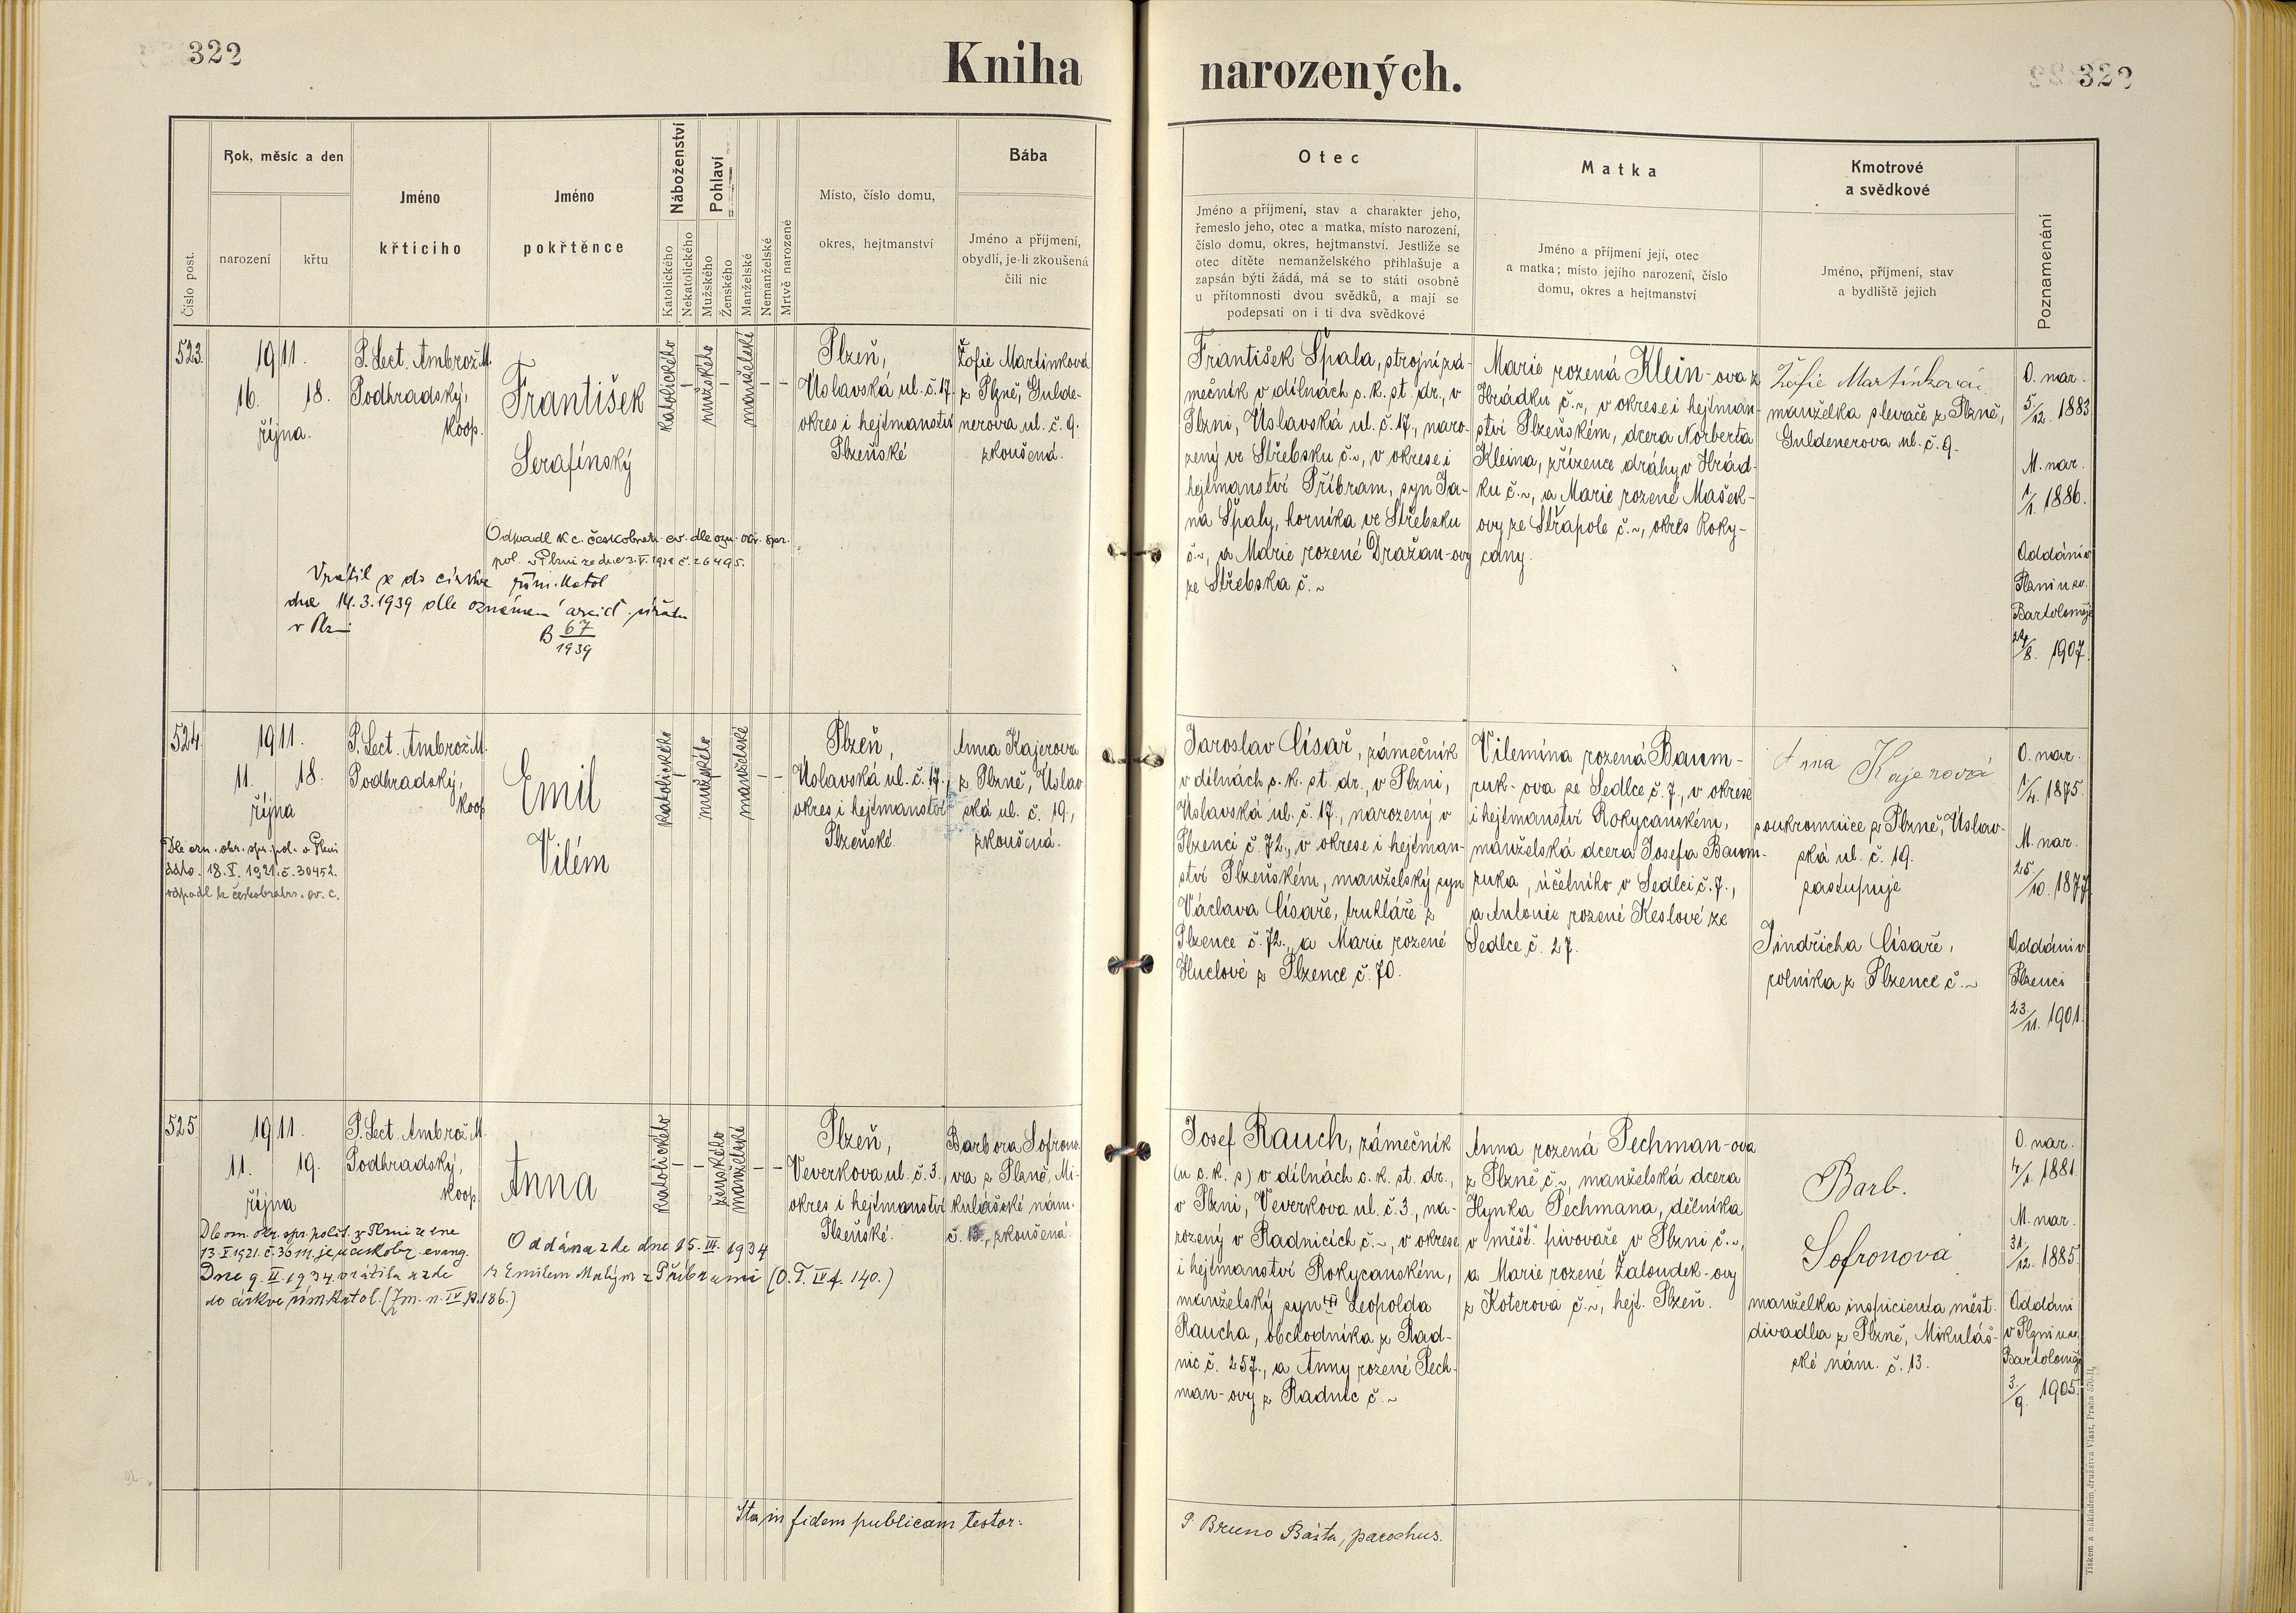 322
Kniha
narozených.
322
Číslo post.
Rok, měsíc a den
narození
křtu
Jméno
křtícího
Jméno
pokřtěnce
Náboženství
Katolického
Nekatolického
Pohlaví
Mužského
Ženského
Manželské
Nemanželské
Mrtvě narozené
Místo, číslo domu,
okres, hejtmanství
Bába
Jméno a příjmení,
obydlí, je-li zkoušená
čili nic
Otec
Jméno a příjmení, stav a charakter jeho,
řemeslo jeho, otec a matka, místo narození,
číslo domu, okres, hejtmanství. Jestliže se
otec dítěte nemanželského přihlašuje a
zapsán býti žádá, má se to státi osobně
u přítomnosti dvou svědků, a mají se
podepsati on i ti dva svědkové
Matka
Jméno a příjmení její, otec
a matka; místo jejího narození, číslo
domu, okres a hejtmanství
Kmotrové
a svědkové
Jméno, příjmení, stav
a bydliště jejich
Poznamenání
523.
1911.
16. 18.
října.
P. Lect. Ambrož M.
Podhradský,
koop.
František
Serafínský
katolického
–
mužského
–
manželské
– –
Plzeň,
Úslavská ul. č. 17.
okres i hejtmanství
Plzeňské
Žofie Martinková
z Plzně, Gulde-
nerova ul. č. 9.
zkoušená.
Odpadl k c. českobratr. ev. dle ozn. okr. spr.
pol. v Plzni ze dne 3.V. 1921 č. 26495.
Vrátil se do církve řím. katol
dne 14.3.1939 dle oznámení arcid. úřadu
v Plzni
B 67
1939
František Špala, strojní zá-
mečník v dílnách c. k. st. dr., v
Plzni, Úslavská ul. č. 17., naro-
zený ve Střebsku č. ~, v okrese i
hejtmanství Příbram, syn Ja-
na Špaly, horníka ve Střebsku
č. ~, a Marie rozené Dražan-ovy
ze Střebska č. ~
Marie rozená Klein-ova z
Hrádku č. ~, v okrese i hejtman-
ství Plzeňském, dcera Norberta
Kleina, zřízence dráhy v Hrád-
ku č. ~, a Marie rozené Mašek-
ovy ze Střapole č. ~, okres Roky-
cany.
Žofie Martínková
manželka slevače z Plzně,
Guldenerova ul. č. 9.
O. nar.
5/12. 1883
M. nar.
1/1. 1886.
Oddáni v
Plzni u sv.
Bartoloměje
24/8. 1907.
524.
1911.
11. 18.
října
P. Lect. Ambrož M.
Podhradský,
koop
Emil
Vilém
katolického
–
mužského
–
manželské
– –
Plzeň,
Úslavská ul. č. 17.,
okres i hejtmanství
Plzeňské
Anna Kajerova
z Plzně, Úslav-
ská ul. č. 19.,
zkoušená.
Dle ozn. okr. spr. pol. v Plzni
ddto. 18.V. 1921. č. 30452.
odpadl k českobratrs. ev. c.
Jaroslav Císař, zámečník
v dílnách c. k. st. dr., v Plzni,
Úslavská ul. č. 17., narozený v
Plzenci č. 72., v okrese i hejtman-
ství Plzeňském, manželský syn
Václava Císaře, truhláře z
Plzence č. 72., a Marie rozené
Huclové z Plzence č. 70.
Vilemína rozená Baum-
ruk-ova ze Sedlce č. 7., v okrese
i hejtmanství Rokycanském,
manželská dcera Josefa Baum-
ruka, účetního v Sedlci č. 7.,
a Antonie rozené Keslové ze
Sedlce č. 27.
Anna Kajerová
soukromnice z Plzně, Úslav-
ská ul. č. 19.
zastupuje
Jindřicha Císaře,
rolníka z Plzence č. ~
O. nar.
1/4. 1875.
M. nar.
25/10. 1877
Oddáni v
Plzenci
23/11. 1901.
525.
1911.
11. 19.
října
P. Lect. Ambrož M.
Podhradský,
koop.
Anna
katolického
– –
ženského
manželské
– –
Plzeň,
Veverkova ul. č. 3.,
okres i hejtmanství
Plzeňské.
Barbora Sofrono-
va z Plzně, Mi-
kulášské nám.
č. 13., zkoušená.
Dle ozn. okr. spr. polit. z Plzni ze dne
13.V. 1921. č. 36111. je českobr. evang.
Dne 9.II.1934 vrátila se zde
do církve řím. katol. (Jm. n. IV p. 186.)
Oddána zde dne 15. III. 1934
s Emilem Malým z Příbrami (O. T. IV f. 140.)
Josef Rauch, zámečník
(u c. k. s) v dílnách c. k. st. dr.,
v Plzni, Veverkova ul. č. 3., na-
rozený v Radnicích č. ~, v okrese
i hejtmanství Rokycanském,
manželský syn Leopolda
Raucha, obchodníka z Rad-
nic č. 257., a Anny rozené Pech-
man-ovy z Radnic č. ~
Anna rozená Pechman-ova
z Plzně č. ~, manželská dcera
Hynka Pechmana, dělníka
v měšť. pivovaře v Plzni č. ~,
a Marie rozené Žaloudek-ovy
z Koterova č. ~, hejt. Plzeň.
Barb.
Sofronová
manželka inspicienta měst.
divadla z Plzně, Mikuláš-
ské nám. č. 13.
O. nar.
4/1. 1881
M. nar.
31/12. 1885.
Oddáni
v Plzni u sv.
Bartoloměje
3/9. 1905.
Ita in fidem publicam testor:
P. Bruno Bašta, parochus.
Tiskem a nákladem družstva Vlast, Praha 570-II.